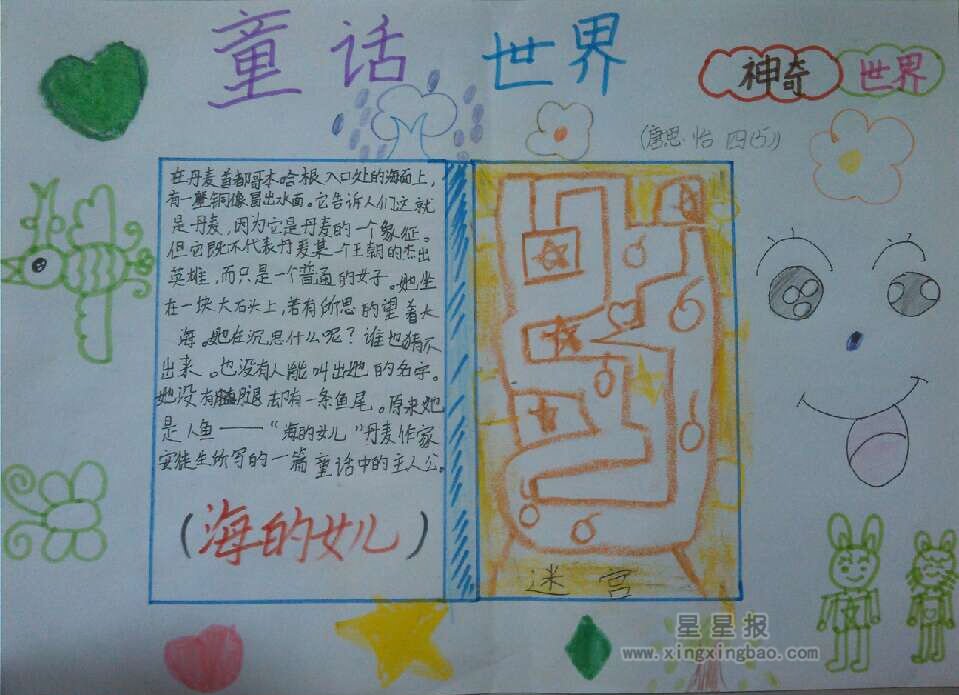 童话世界
神奇 世界
(唐思怡 四(5))
在丹麦首都哥本哈根入口处的海面上,
有一整铜像冒出水面。它告诉人们这就
是丹麦,因为它是丹麦的一个象征。
但它既不代表丹麦某个王朝的杰出
英雄,而只是一个普通的女子。她坐
在一块大石头上,若有所思的望着大
海。她在沉思什么呢?谁也猜不
出来。也没有人能叫出她的名字。
她没有腿却有一条鱼尾。原来她
是人鱼——“海的女儿”丹麦作家
安徒生所写的一篇童话中的主人公。
(海的女儿)
迷宫
星星报
www.xingxingbao.com